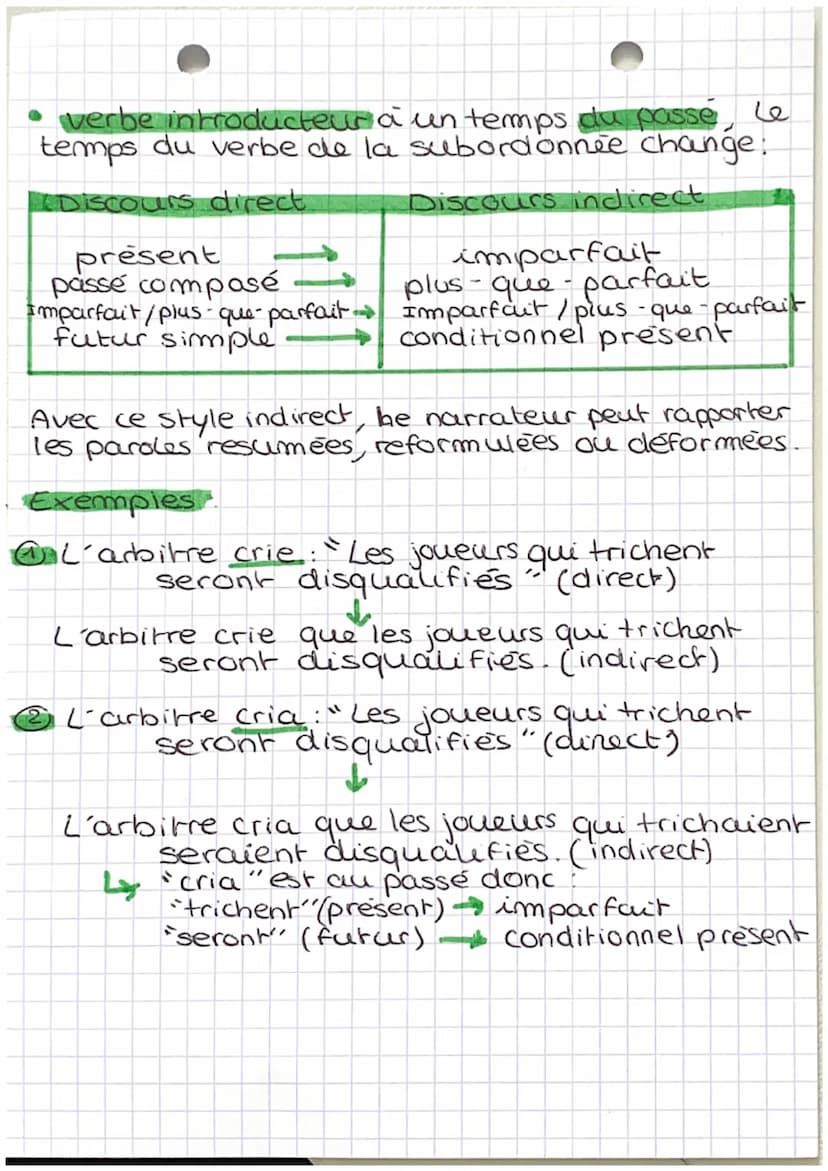 • verbe introducteur à un temps du passé, le
temps du verbe de la subordonnée change:
Discours direct Discours indirect
présent → imparfait
passé composé → plus-que-parfait
Imparfait/plus-que-parfait → Imparfait/plus-que-parfait
futur simple → conditionnel présent
Avec ce style indirect, le narrateur peut rapporter
les paroles resumées, reformulées ou déformées.
Exemples
① L'arbitre crie: "Les joueurs qui trichent
seront disqualifiés" (direct)
↓
L'arbitre crie que les joueurs qui trichent
seront disqualifiés. (indirect)
② L'arbitre cria: "Les joueurs qui trichent
seront disqualifiés" (direct)
↓
L'arbitre cria que les joueurs qui trichaient
seraient disqualifiés. (indirect)
↳ "cria" est au passé donc :
"trichent" (présent) → imparfait
"seront" (futur) → conditionnel présent